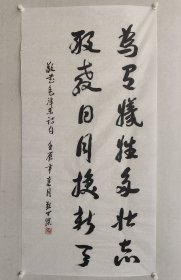 为有牺牲多壮志
敢教日月换新天
敬录毛泽东诗句 壬辰年